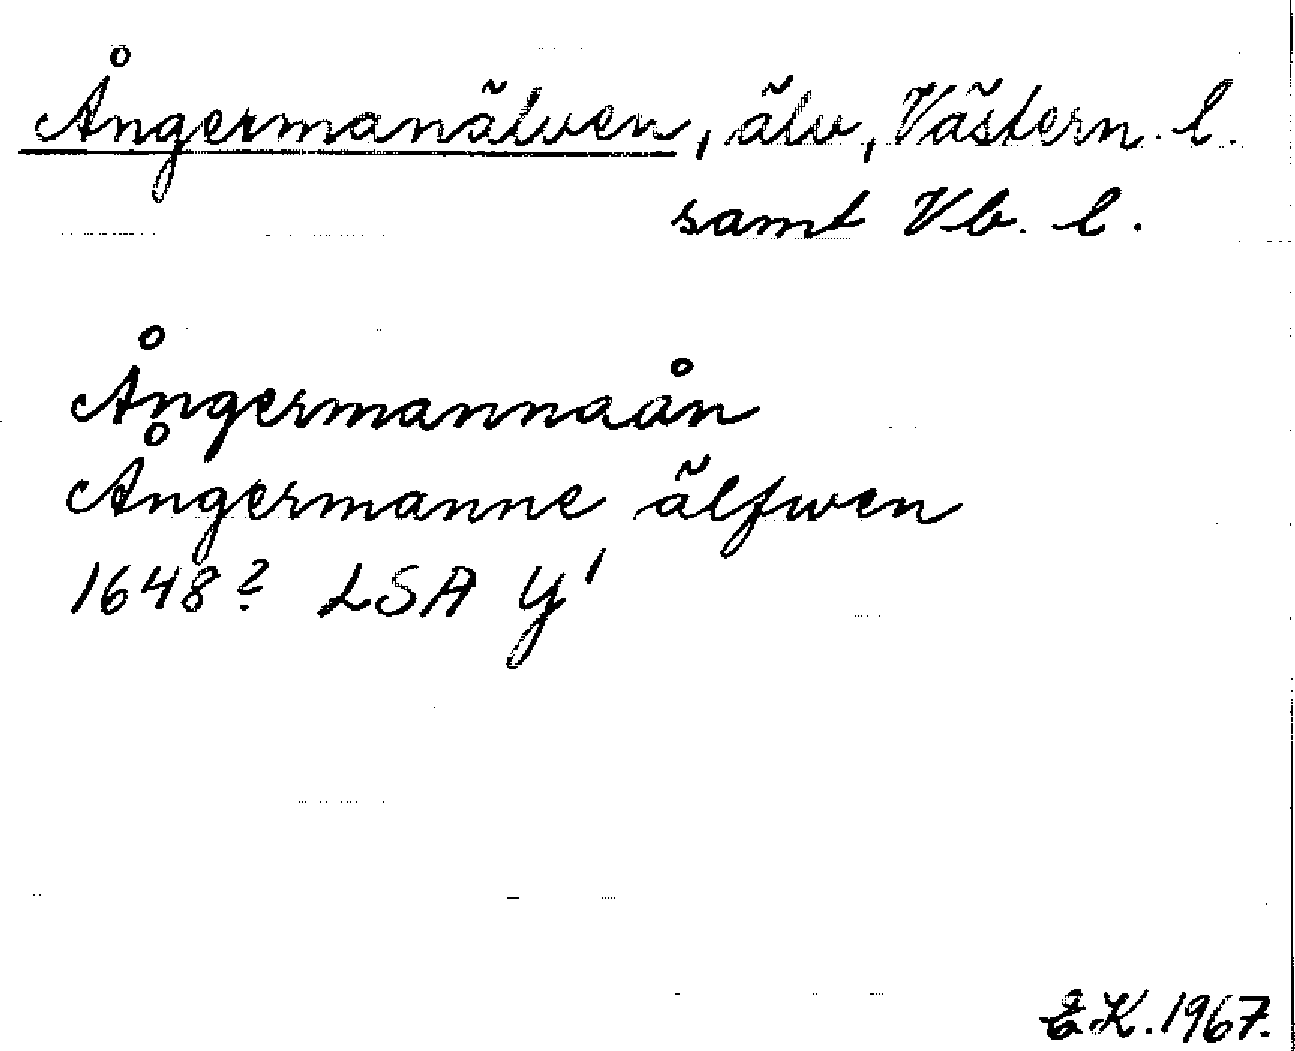 Ångermanälven, älv, Västern. l.
samt Vb. l.
Ångermannaån
Ångermanne älfwen
1648? LSA Y'
E.K. 1967.